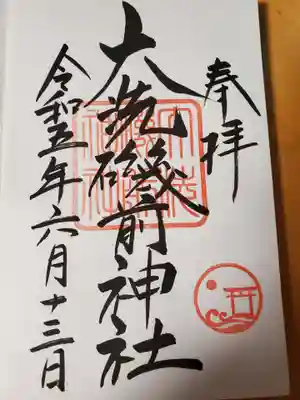 奉拝
大洗磯前神社
令和五年六月十三日